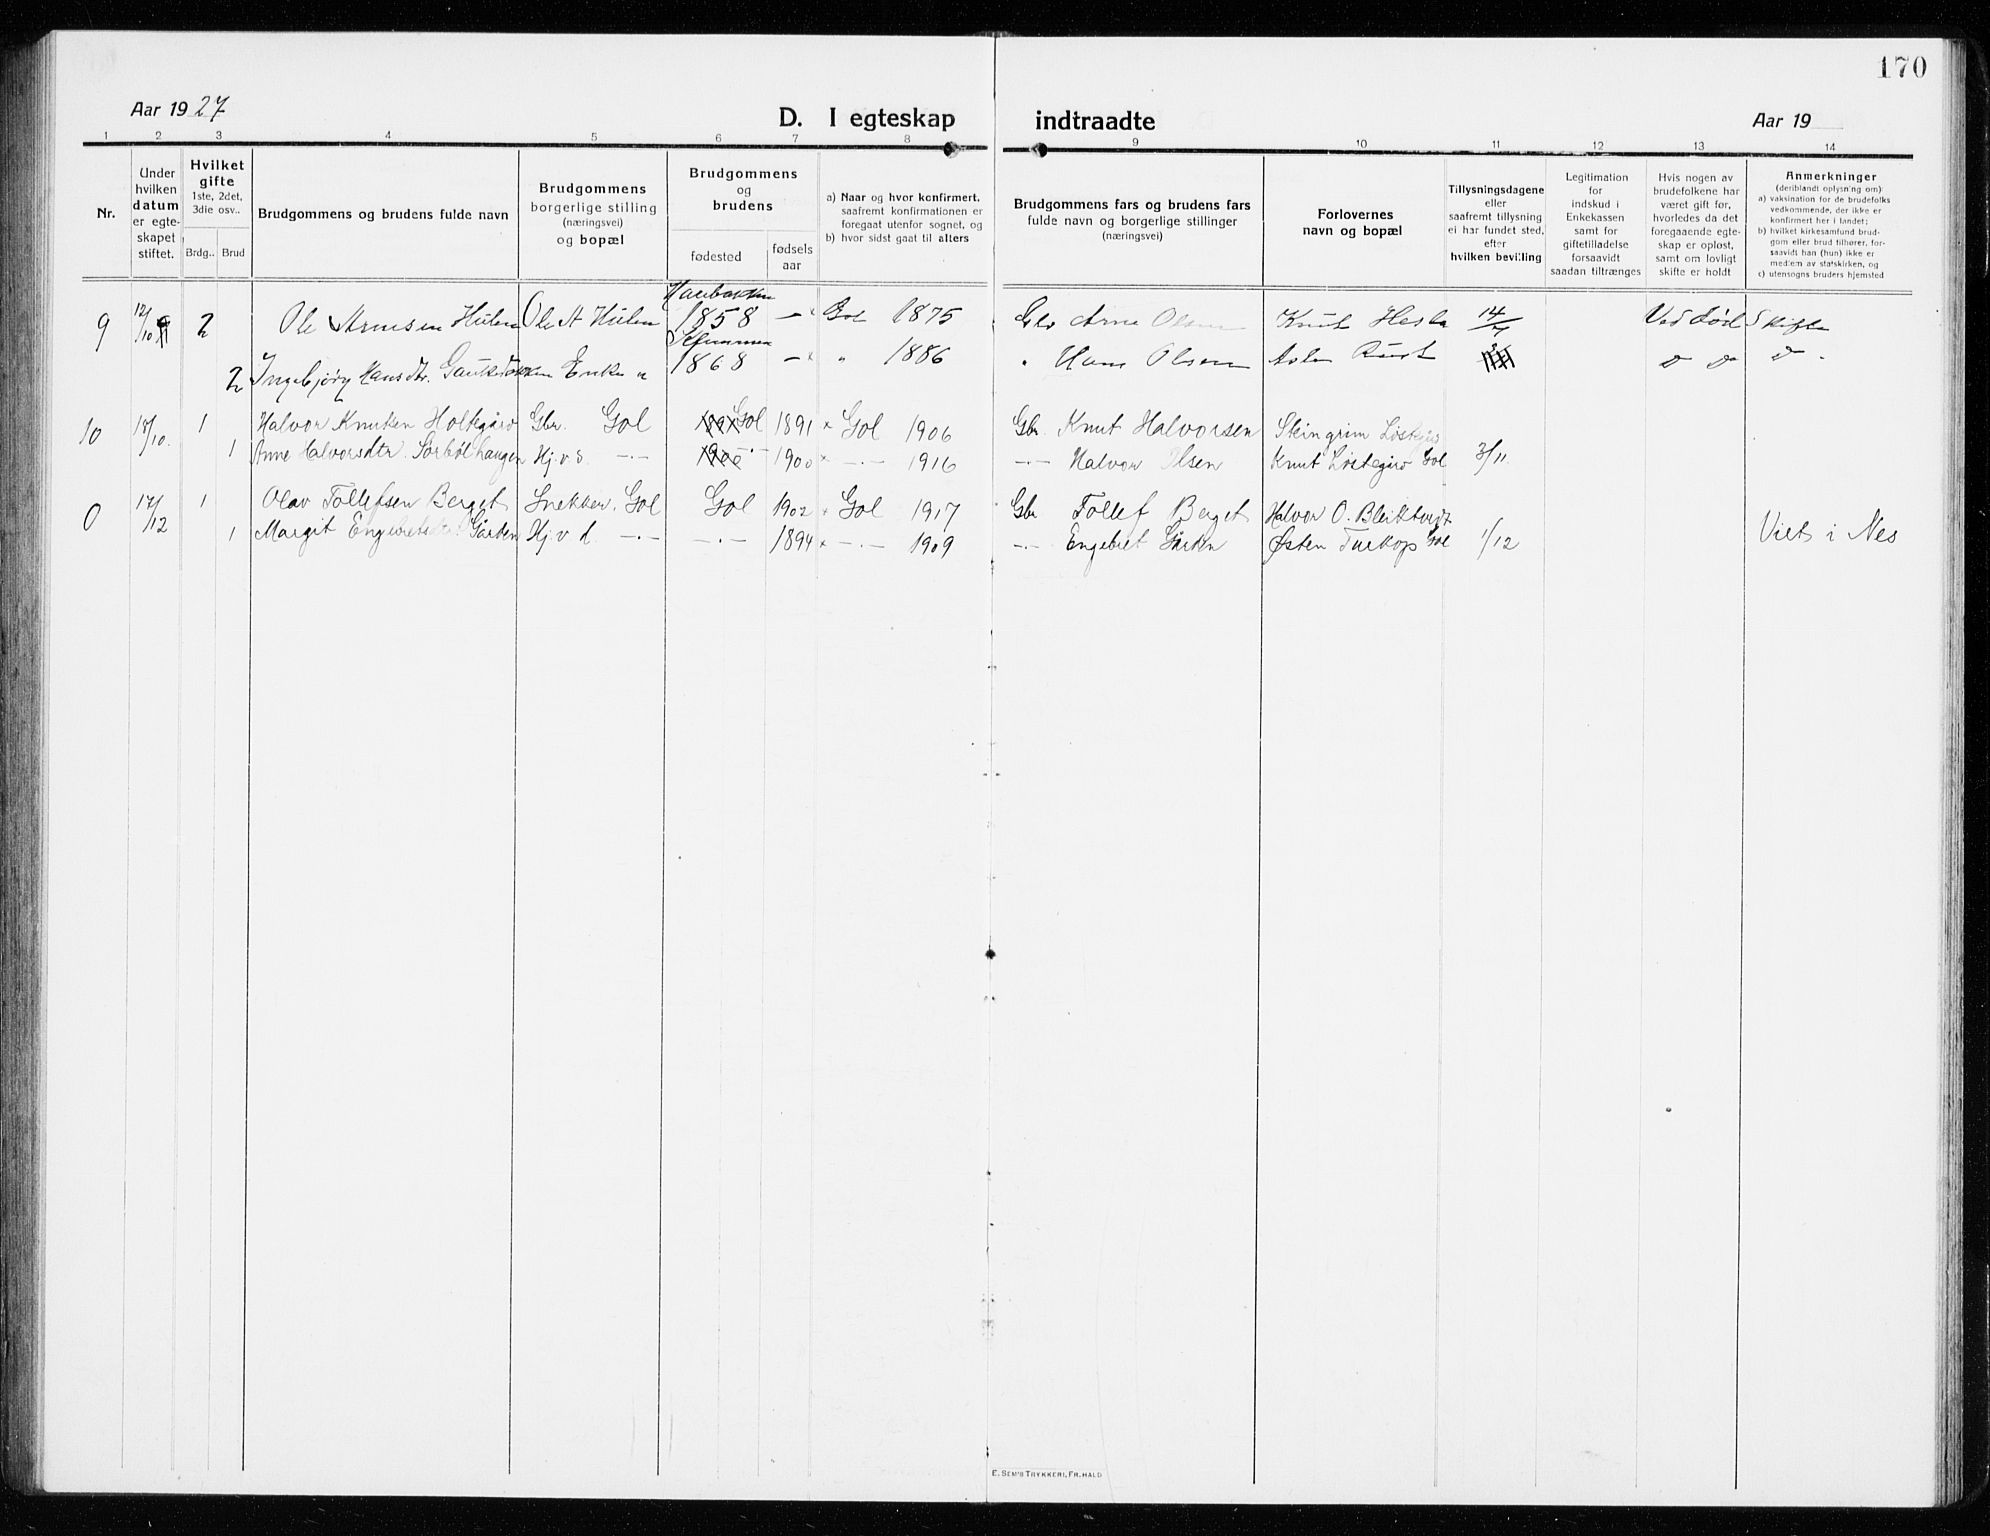 170
Aar 1927
D. I egteskap indtraadte
Aar 19
1 2 3 4 5 6 7 8 9 10 11 12 13 14
Nr.
Under hvilken datum er egteskapet stiftet.
Hvilket gifte
1ste, 2det, 3die osv..
Brdg.. Brud
Brudgommens og brudens fulde navn
Brudgommens borgerlige stilling (næringsvei) og bopæl
Brudgommens og brudens
fødested
fødsels aar
a) Naar og hvor konfirmert, saafremt konfirmationen er foregaat utenfor sognet, og
b) hvor sidst gaat til alters
Brudgommens fars og brudens fars fulde navn og borgerlige stillinger (næringsvei)
Forlovernes navn og bopæl
Tillysningsdagene eller saafremt tillysning ei har fundet sted, efter hvilken bevilling
Legitimation for indskud i Enkekassen samt for giftetilladelse forsaavidt saadan tiltrænges
Hvis nogen av brudefolkene har været gift før, hvorledes da det foregaaende egteskap er opløst, samt om lovligt skifte er holdt
Anmerkninger
(deriblandt oplysning om):
a) vaksination for de brudefolks vedkommende, der ikke er konfirmert her i landet;
b) hvilket kirkesamfund brudgom eller brud tilhører, forsaavidt han (hun) ikke er medlem av statskirken, og
c) utensogns bruders hjemsted
9 12/10 2 Ole Arnesen Hulen Ole A Hulen 1858 — Gol 1875 Arne Olsen Knut Hesla 14/ Ved død Skifte
2 Ingebjørg Hansdtr. Enke " 1868 — " 1886 " Hans Olsen
10 18/10. 1 Halvor Knutsen Holtegård Gbr. Gol Gol 1891 Gol 1906 Gbr. Knut Halvorsen Steingrim
1 Anne Halvorsdtr Sørbølhaugen Hj.v.d. —.— 1900 1900 —.— 1916 —.— Halvor Olsen Knut Gol 3/11.
0 17/12 1 Olav Tollefsen Berget Snekker. Gol Gol 1902 Gol 1917 Gbr Tollef Berget Halvor O.
1 Margit Hj.v.d. —.— —.— 1894 —.— 1909 —.— Engebret Østen Gol 1/12 Viet i Nes
E. SEM'S TRYKKERI, FR.HALD